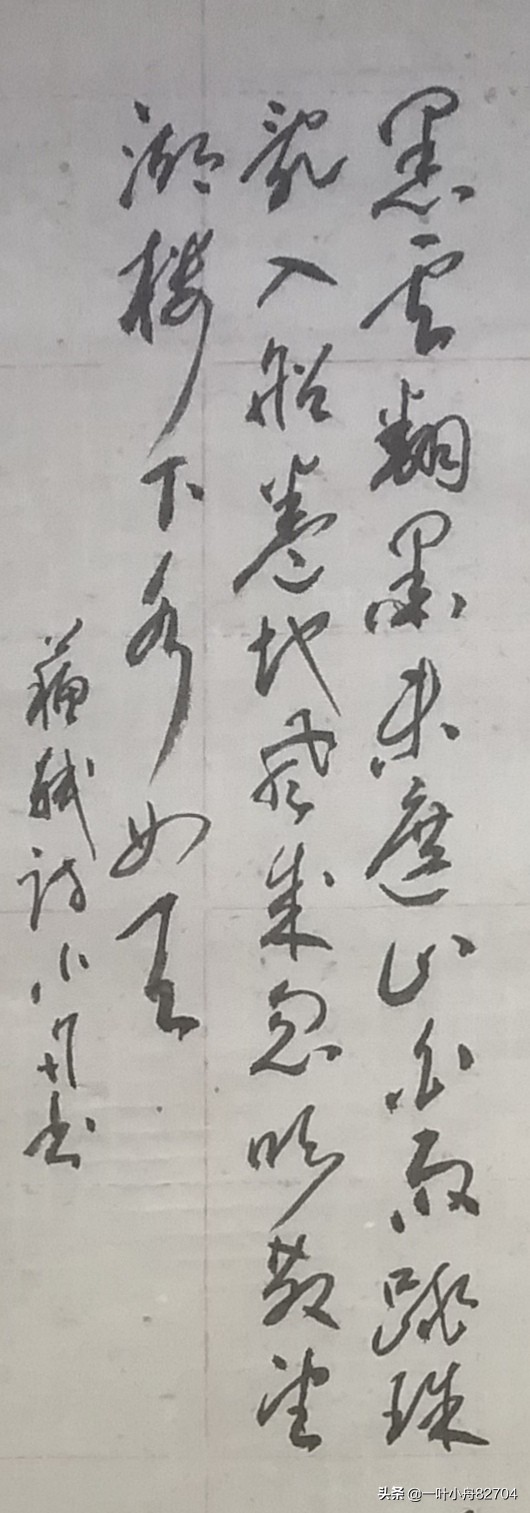 黑云翻墨未遮山白雨跳珠
乱入船卷地风来忽吹散望
湖楼下水如天
苏轼诗小舟书
头条 @一叶小舟82704